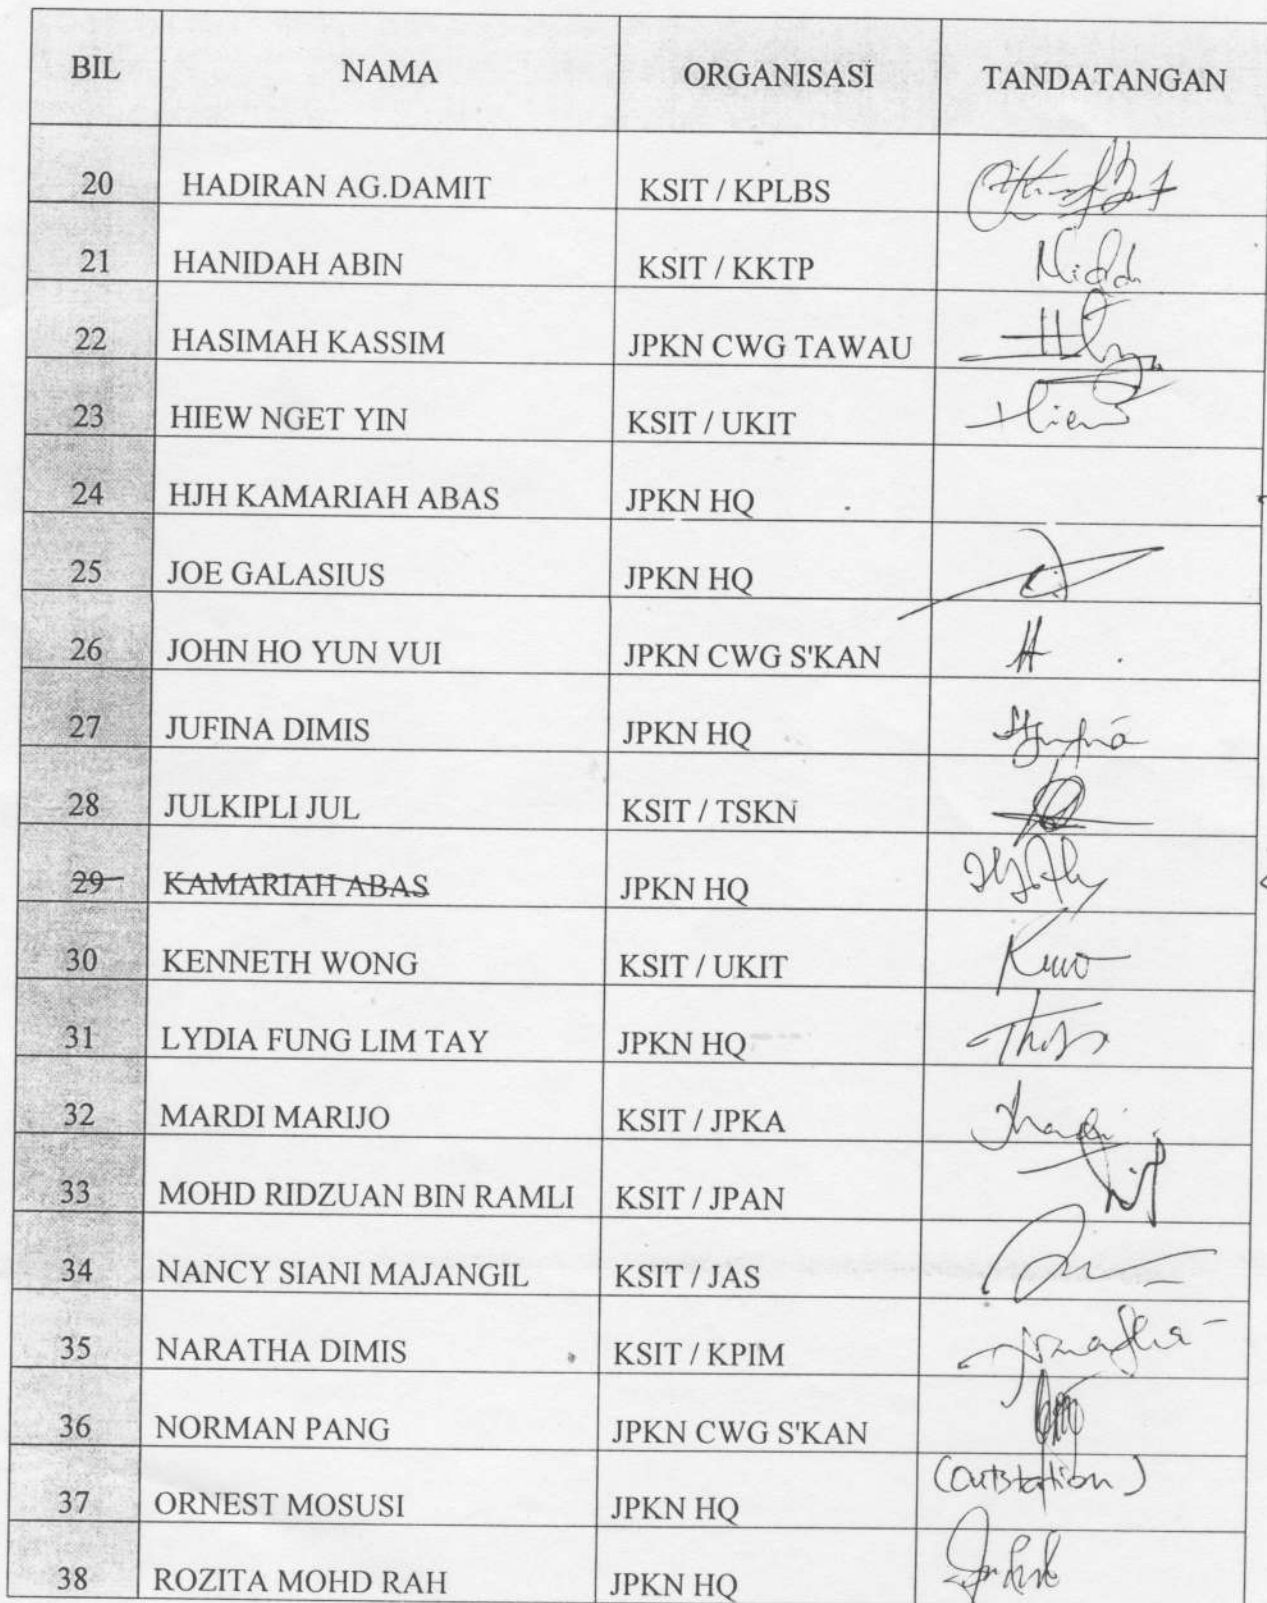 BIL NAMA ORGANISASI TANDATANGAN
20 HADIRAN AG.DAMIT KSIT / KPLBS
21 HANIDAH ABIN KSIT / KKTP
22 HASIMAH KASSIM JPKN CWG TAWAU
23 HIEW NGET YIN KSIT / UKIT
24 HJH KAMARIAH ABAS JPKN HQ
25 JOE GALASIUS JPKN HQ
26 JOHN HO YUN VUI JPKN CWG S'KAN
27 JUFINA DIMIS JPKN HQ
28 JULKIPLI JUL KSIT / TSKN
29 KAMARIAH ABAS JPKN HQ
30 KENNETH WONG KSIT / UKIT
31 LYDIA FUNG LIM TAY JPKN HQ
32 MARDI MARIJO KSIT / JPKA
33 MOHD RIDZUAN BIN RAMLI KSIT / JPAN
34 NANCY SIANI MAJANGIL KSIT / JAS
35 NARATHA DIMIS KSIT / KPIM
36 NORMAN PANG JPKN CWG S'KAN
37 ORNEST MOSUSI JPKN HQ (outstation)
38 ROZITA MOHD RAH JPKN HQ